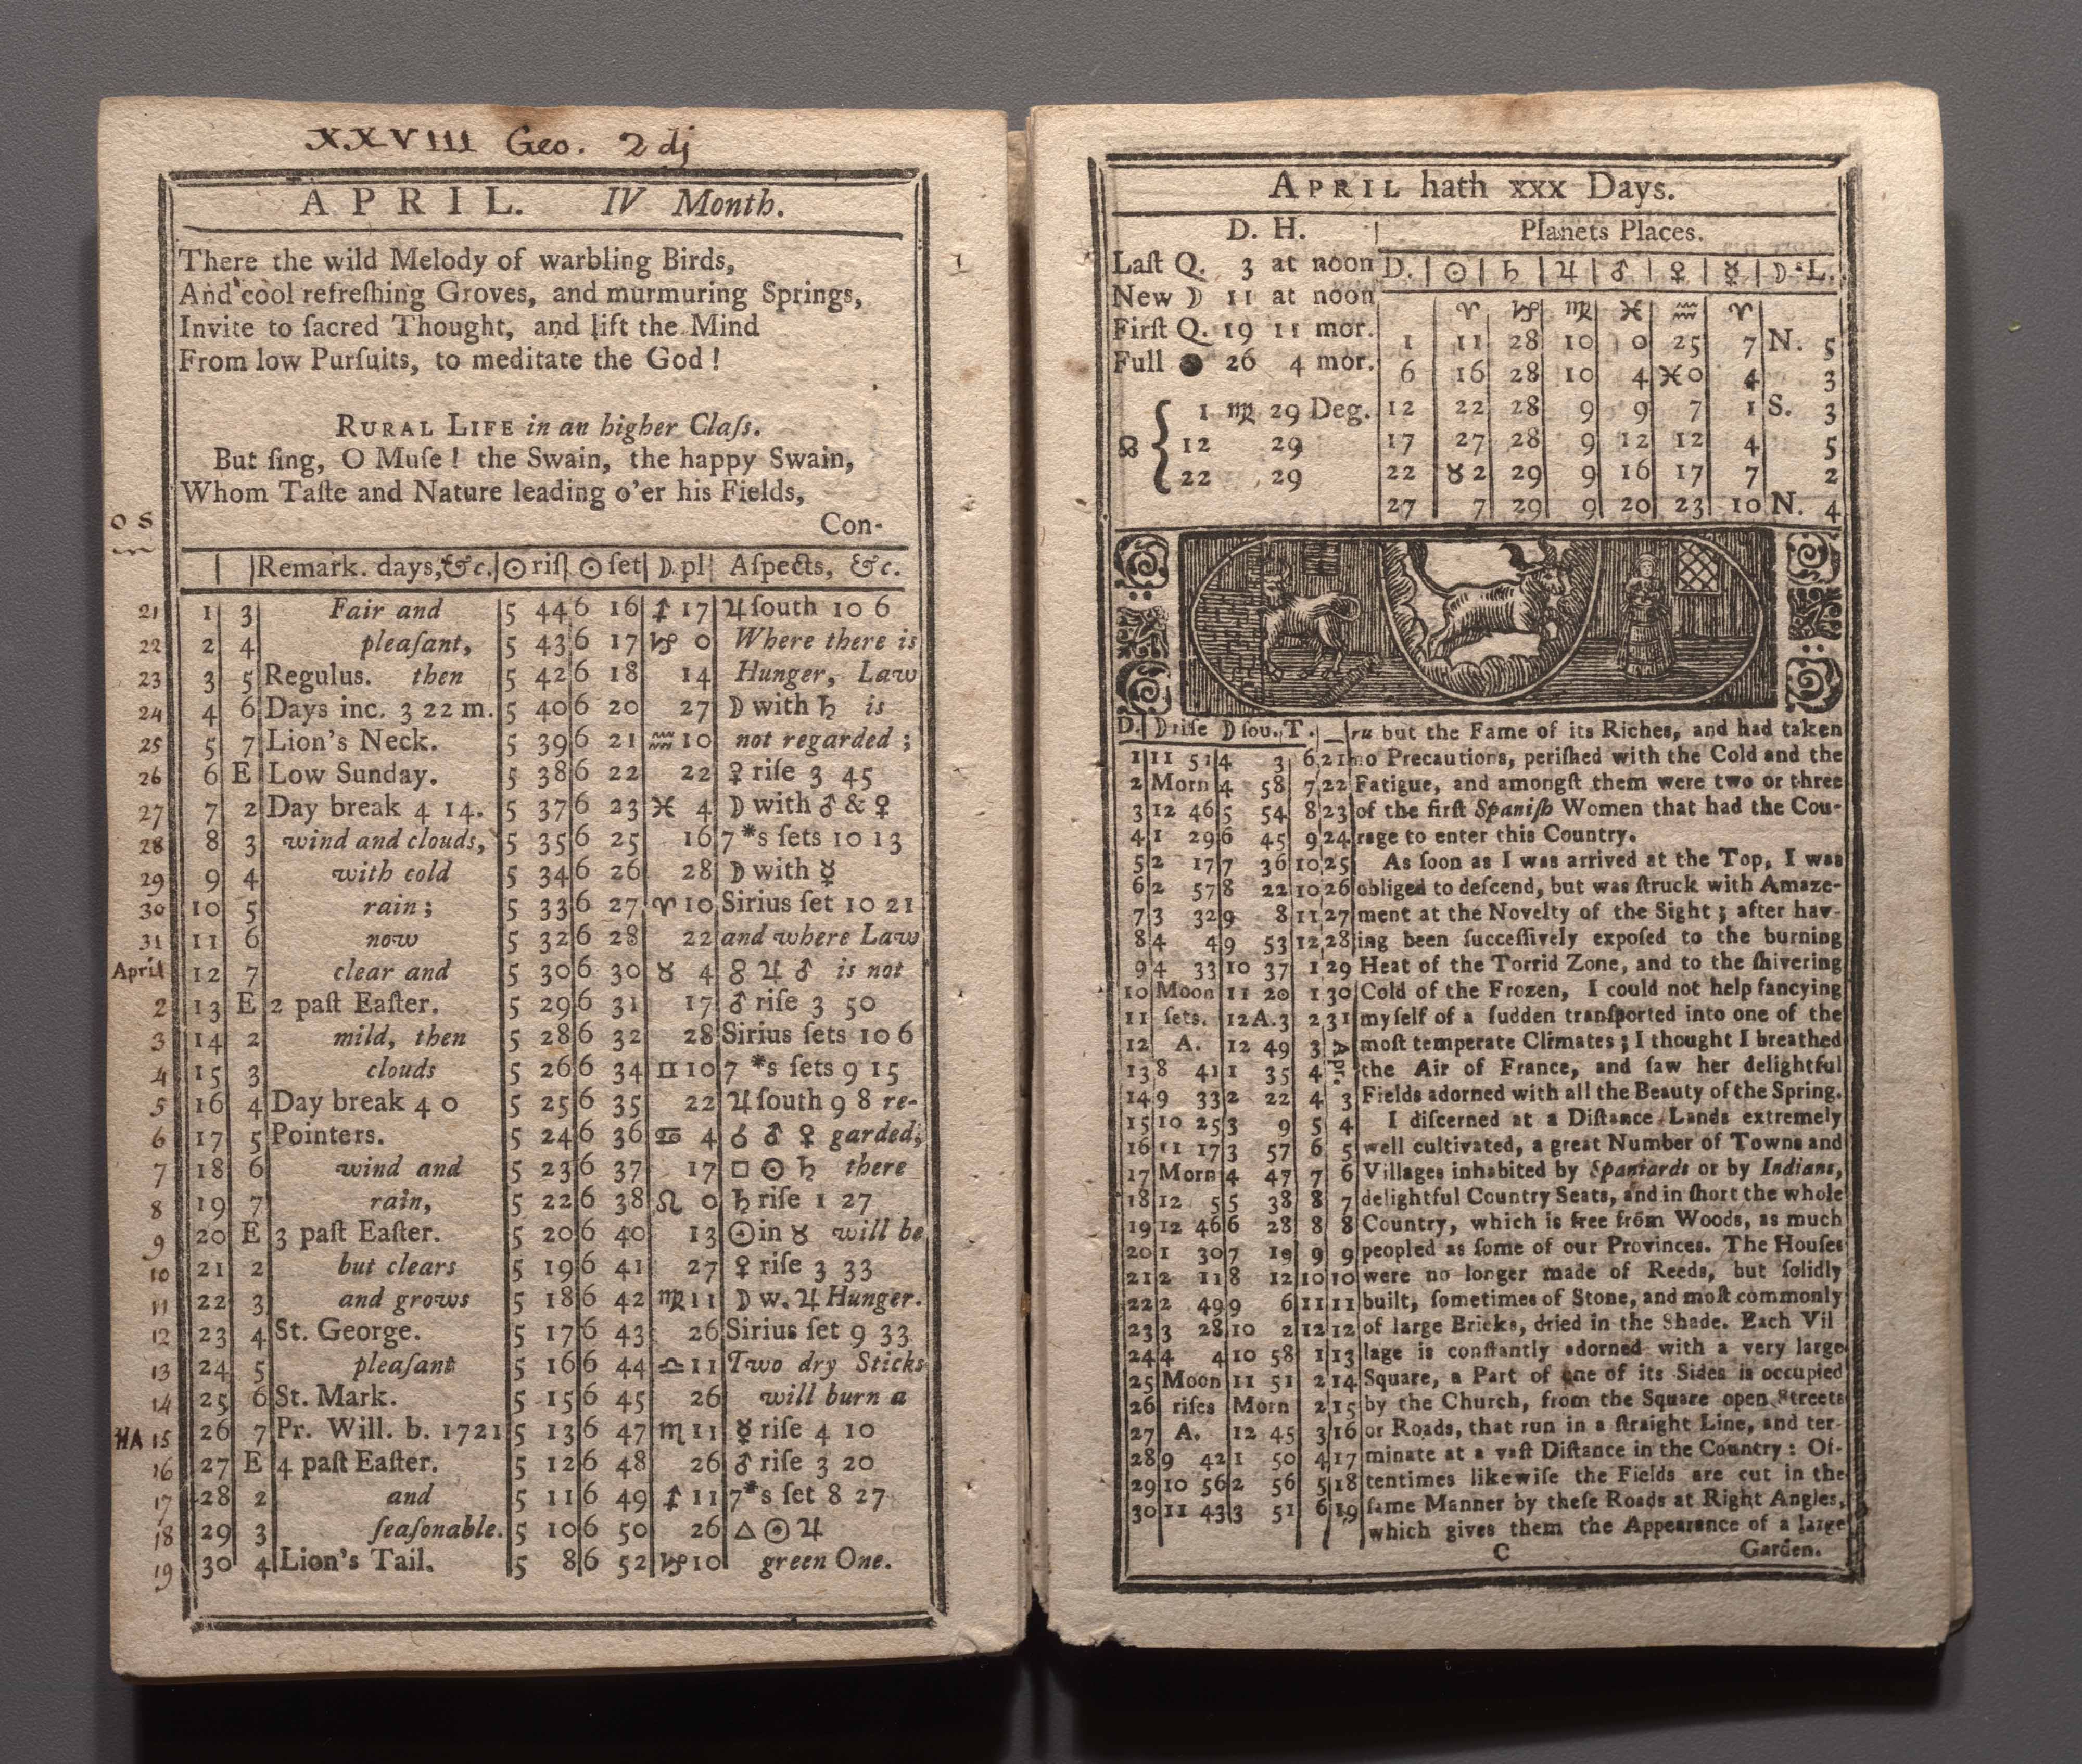 XXVIII Geo. 2dj
APRIL. IV Month.
There the wild Melody of warbling Birds,
And cool refreſhing Groves, and murmuring Springs,
Invite to ſacred Thought, and lift the Mind
From low Purſuits, to meditate the God!
RURAL LIFE in an higher Claſs.
But ſing, O Muſe! the Swain, the happy Swain,
Whom Taſte and Nature leading o'er his Fields,
O S
Con-
Remark. days, &c. ☉ riſ ☉ ſet ☽ pl Aſpects, &c.
21 1 3 Fair and 5 44 6 16 ♐ 17 ♃ ſouth 10 6
22 2 4 pleaſant, 5 43 6 17 ♑ 0 Where there is
23 3 5 Regulus. then 5 42 6 18 14 Hunger, Law
24 4 6 Days inc. 3 22 m. 5 40 6 20 27 ☽ with ♄ is
25 5 7 Lion's Neck. 5 39 6 21 ♒ 10 not regarded;
26 6 E Low Sunday. 5 38 6 22 22 ♀ riſe 3 45
27 7 2 Day break 4 14. 5 37 6 23 ♓ 4 ☽ with ♂ & ♀
28 8 3 wind and clouds, 5 35 6 25 16 7*s ſets 10 13
29 9 4 with cold 5 34 6 26 28 ☽ with ☿
30 10 5 rain; 5 33 6 27 ♈ 10 Sirius ſet 10 21
31 11 6 now 5 32 6 28 22 and where Law
April 12 7 clear and 5 30 6 30 ♉ 4 ☍ ♃ ♂ is not
2 13 E 2 paſt Eaſter. 5 29 6 31 17 ♂ riſe 3 50
3 14 2 mild, then 5 28 6 32 28 Sirius ſets 10 6
4 15 3 clouds 5 26 6 34 ♊ 10 7 *s ſets 9 15
5 16 4 Day break 4 0 5 25 6 35 22 ♃ ſouth 9 8 re-
6 17 5 Pointers. 5 24 6 36 ♋ 4 ☌ ♂ ♀ garded;
7 18 6 wind and 5 23 6 37 17 □ ☉ ♄ there
8 19 7 rain, 5 22 6 38 ♌ 0 ♄ riſe 1 27
9 20 E 3 paſt Eaſter. 5 20 6 40 13 ☉ in ♉ will be
10 21 2 but clears 5 19 6 41 27 ♀ riſe 3 33
11 22 3 and grows 5 18 6 42 ♍ 11 ☽ w. ♃ Hunger.
12 23 4 St. George. 5 17 6 43 26 Sirius ſet 9 33
13 24 5 pleaſant 5 16 6 44 ♎ 11 Two dry Sticks
14 25 6 St. Mark. 5 15 6 45 26 will burn a
HA 15 26 7 Pr. Will. b. 1721 5 13 6 47 ♏ 11 ☿ riſe 4 10
16 27 E 4 paſt Eaſter. 5 12 6 48 26 ♂ riſe 3 20
17 28 2 and 5 11 6 49 ♐ 11 7*s ſet 8 27
18 29 3 ſeaſonable. 5 10 6 50 26 △ ☉ ♃
19 30 4 Lion's Tail. 5 8 6 52 ♑ 10 green One.
APRIL hath xxx Days.
D. H. Planets Places.
Laſt Q. 3 at noon D. ☉ ♄ ♃ ♂ ♀ ☿ ☽'s L.
New ☽ 11 at noon ♈ ♑ ♍ ♓ ♒ ♈
Firſt Q. 19 11 mor. 1 11 28 10 0 25 7 N. 5
Full ● 26 4 mor. 6 16 28 10 4 ♓ 0 4 3
☊ { 1 ♍ 29 Deg. 12 22 28 9 9 7 1 S. 3
12 29 17 27 28 9 12 12 4 5
22 29 22 ♉ 2 29 9 16 17 7 2
27 7 29 9 20 23 10 N. 4
D. ☽ riſe ☽ ſou. T. ru but the Fame of its Riches, and had taken
1 11 51 4 3 6 21 no Precautions, periſhed with the Cold and the
2 Morn 4 58 7 22 Fatigue, and amongſt them were two or three
3 12 46 5 54 8 23 of the firſt Spaniſh Women that had the Cou-
4 1 29 6 45 9 24 rage to enter this Country.
5 2 17 7 36 10 25 As ſoon as I was arrived at the Top, I was
6 2 57 8 22 10 26 obliged to deſcend, but was ſtruck with Amaze-
7 3 32 9 8 11 27 ment at the Novelty of the Sight; after hav-
8 4 4 9 53 12 28 ing been ſucceſſively expoſed to the burning
9 4 33 10 37 1 29 Heat of the Torrid Zone, and to the ſhivering
10 Moon 11 20 1 30 Cold of the Frozen, I could not help fancying
11 ſets. 12A.3 2 31 myſelf of a ſudden tranſported into one of the
12 A. 12 49 3 Apr. moſt temperate Climates; I thought I breathed
13 8 41 1 35 4 the Air of France, and ſaw her delightful
14 9 33 2 22 4 3 Fields adorned with all the Beauty of the Spring.
15 10 25 3 9 5 4 I diſcerned at a Diſtance Lands extremely
16 11 17 3 57 6 5 well cultivated, a great Number of Towns and
17 Morn 4 47 7 6 Villages inhabited by Spaniards or by Indians,
18 12 5 5 38 8 7 delightful Country Seats, and in ſhort the whole
19 12 46 6 28 8 8 Country, which is free from Woods, as much
20 1 30 7 19 9 9 peopled as ſome of our Provinces. The Houſes
21 2 11 8 12 10 10 were no longer made of Reeds, but ſolidly
22 2 49 9 6 11 11 built, ſometimes of Stone, and moſt commonly
23 3 28 10 2 12 12 of large Bricks, dried in the Shade. Each Vil
24 4 4 10 58 1 13 lage is conſtantly adorned with a very large
25 Moon 11 51 2 14 Square, a Part of one of its Sides is occupied
26 riſes Morn 2 15 by the Church, from the Square open Streets
27 A. 12 45 3 16 or Roads, that run in a ſtraight Line, and ter-
28 9 42 1 50 4 17 minate at a vaſt Diſtance in the Country: Of-
29 10 56 2 56 5 18 tentimes likewiſe the Fields are cut in the
30 11 43 3 51 6 19 ſame Manner by theſe Roads at Right Angles,
which gives them the Appearance of a large
C Garden.